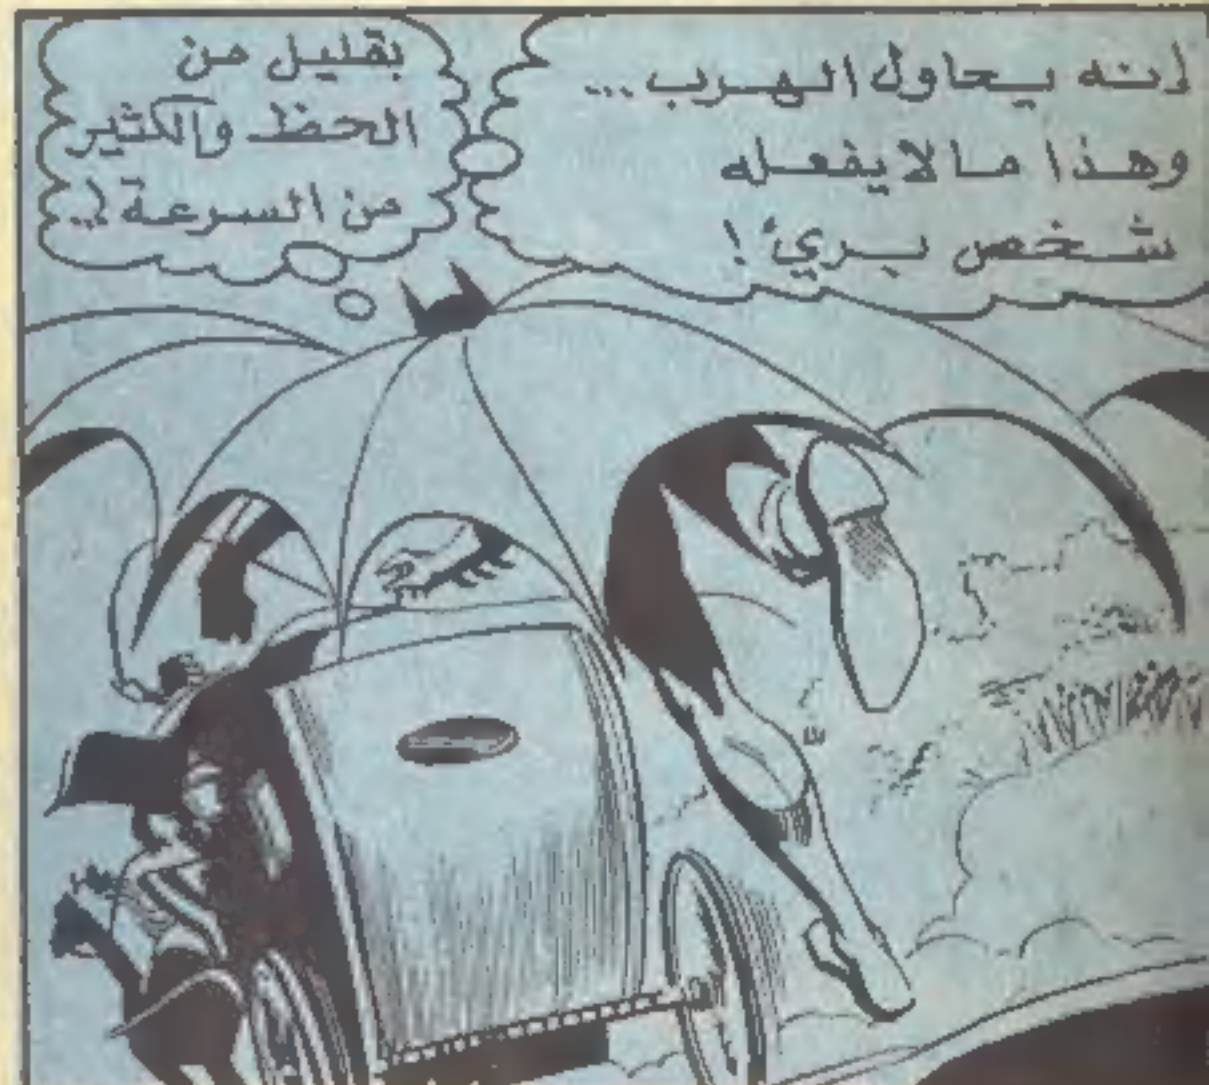 إنه يحاول الهرب...
وهذا ما لا يفعله
شخص بريئ!
بقليل من
الحظ والكثير
من السرعة!..